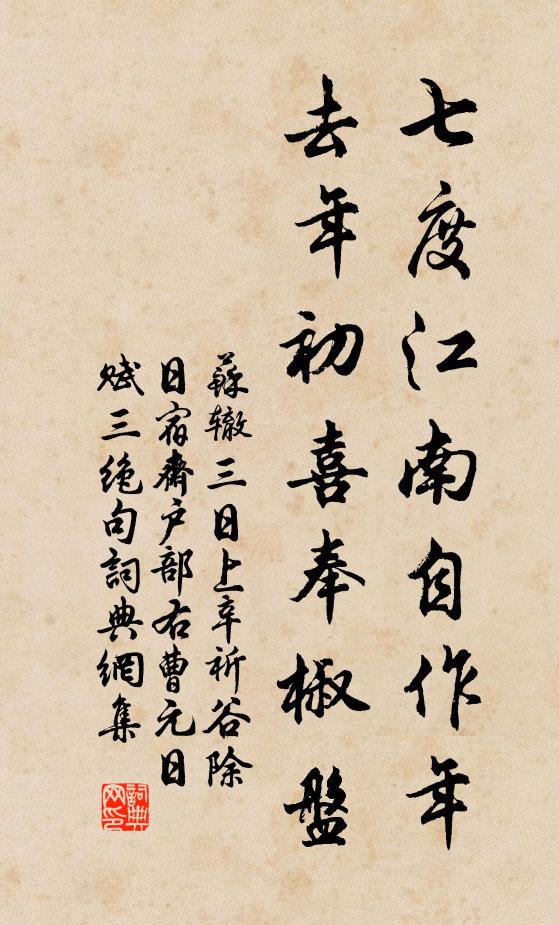 七度江南自作年
去年初喜奉椒盤
蘇轍三日上辛祈谷除
日宿齋戶部右曹元日
賦三絶句詞典網集
詞典
网印